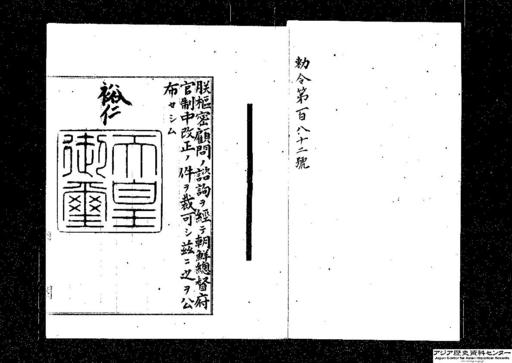 勅令第百八十二號
朕樞密顧問ノ諮詢ヲ經テ朝鮮總督府
官制中改正ノ件ヲ裁可シ茲ニ之ヲ公
布セシム
裕仁
天皇
御璽
アジア歴史資料センター
Japan Center for Asian Historical Records